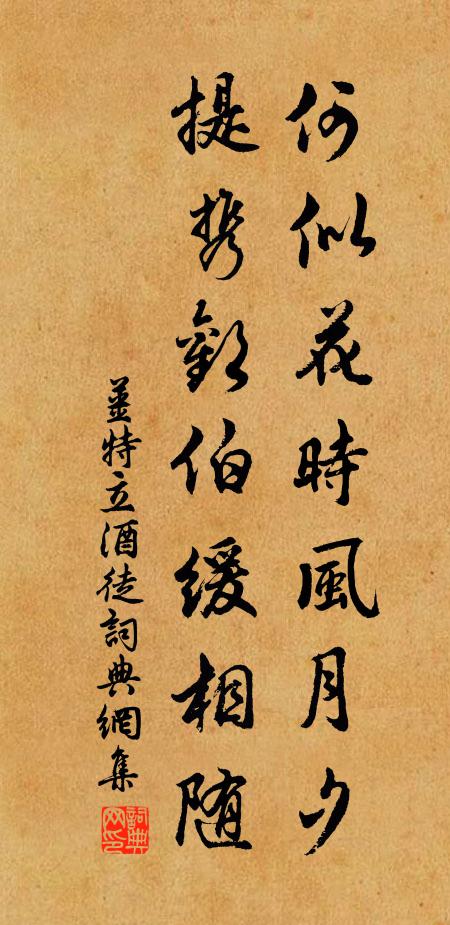 何似花時風月夕
提携歡伯緩相随
姜特立酒徒詞典網集
詞典網印